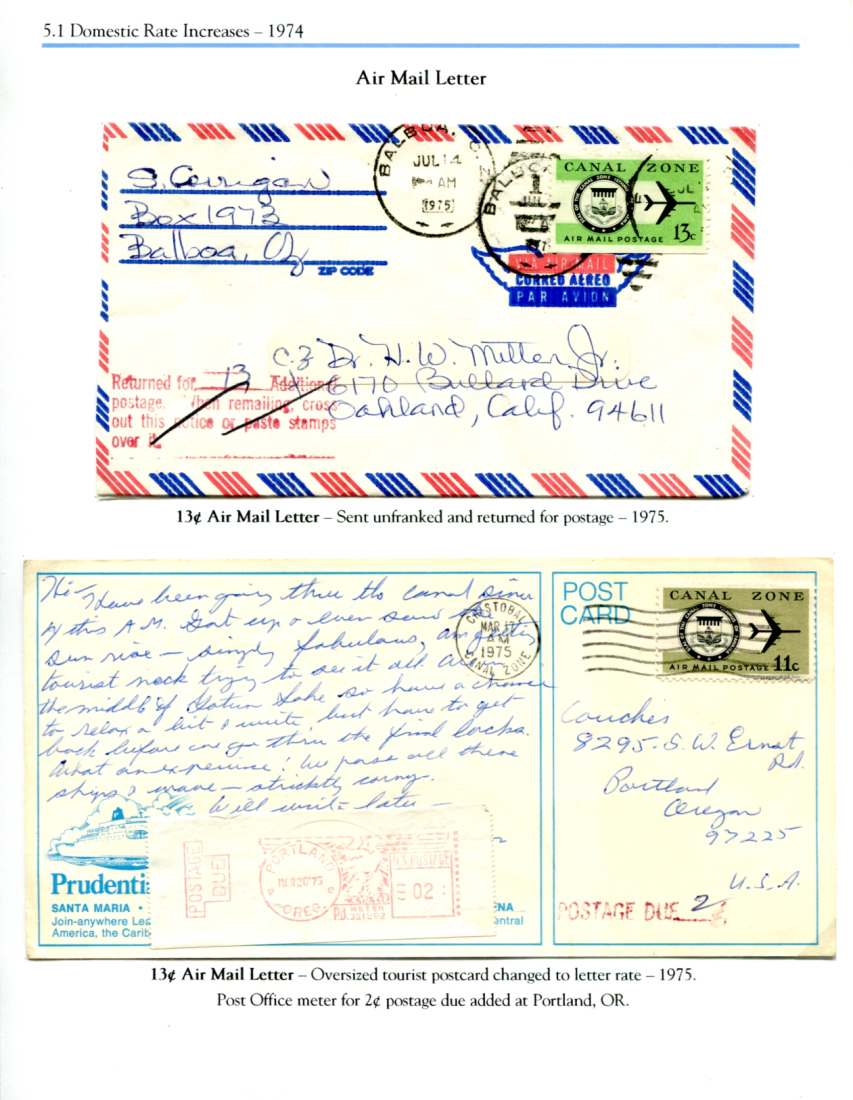 5.1 Domestic Rate Increases – 1974
Air Mail Letter
S. Corrigan
Box 1973
Balboa, CZ
ZIP CODE
BALBOA, C.Z.
JUL 14
AM
1975
BALBOA
JUL
CANAL ZONE
AIR MAIL POSTAGE 13c
VIA AIR MAIL
CORREO AEREO
PAR AVION
Dr. H. W. Miller Jr.
6170 Bullard Drive
Oakland, Calif. 94611
Returned for 13 Additional
postage. When remailing, cross
out this notice or paste stamps
over it.
13¢ Air Mail Letter – Sent unfranked and returned for postage – 1975.
Hi –
Have been going thru the canal since
this A.M. Got up & even saw the
sun rise – simply fabulous, am
tourist neck trying to see it all
the middle of Gatun Lake so have a chance
to relax a bit & write but have to get
back before we go thru the final locks.
What an experience! We pass all these
ships & wave – strictly corny.
Will write later –
CRISTOBAL
MAR 17
AM
1975
CANAL ZONE
POST
CARD
CANAL ZONE
AIR MAIL POSTAGE 11c
Couches
8295 S.W. Ernst
Rd.
Portland
Oregon
97225
U.S.A.
POSTAGE DUE 2¢
Prudenti
SANTA MARIA •
Join-anywhere
America, the Carib
ENA
entral
POSTAGE
DUE
PORTLAND
OREG.
MAR 20 '75
U.S. POSTAGE
02
METER
P.B. 331202
13¢ Air Mail Letter – Oversized tourist postcard changed to letter rate – 1975.
Post Office meter for 2¢ postage due added at Portland, OR.